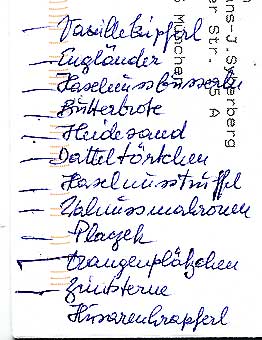 Vanillekipferl
Engländer
Haselnussbusserln
Butterbrote
Heidesand
Datteltörtchen
Haselnusstrüffel
Walnussmakronen
Plazek
Orangenplätzchen
Zimtsterne
Husarenkrapferl
ans-J. Syberberg
er Str. 15 A
München